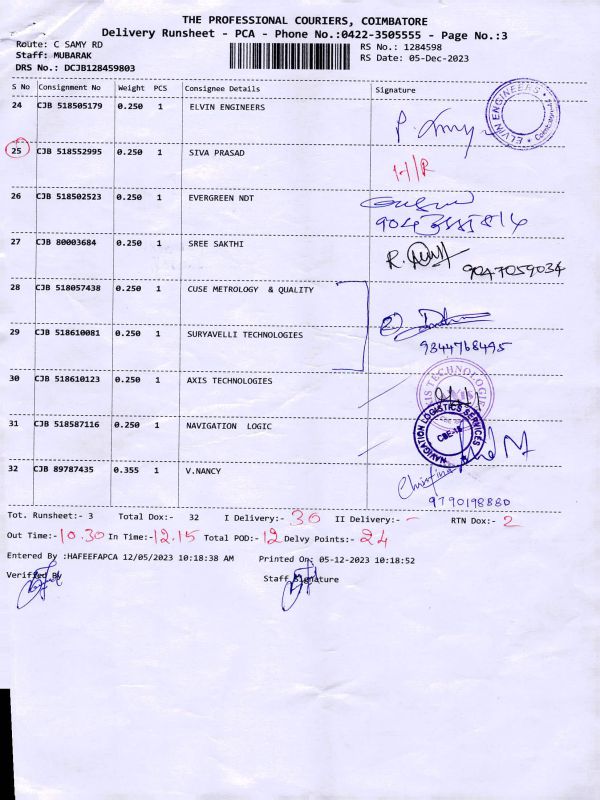 THE PROFESSIONAL COURIERS, COIMBATORE
Delivery Runsheet - PCA - Phone No.:0422-3505555 - Page No.:3
Route: C SAMY RD RS No.: 1284598
Staff: MUBARAK RS Date: 05-Dec-2023
DRS No.: DCJB128459803
S No Consignment No Weight PCS Consignee Details Signature
24 CJB 518505179 0.250 1 ELVIN ENGINEERS
ELVIN ENGINEERS
25 CJB 518552995 0.250 1 SIVA PRASAD
26 CJB 518502523 0.250 1 EVERGREEN NDT
27 CJB 80003684 0.250 1 SREE SAKTHI
9047059034
28 CJB 518057438 0.250 1 CUSE METROLOGY & QUALITY
29 CJB 518610081 0.250 1 SURYAVELLI TECHNOLOGIES
9344768495
30 CJB 518610123 0.250 1 AXIS TECHNOLOGIES
AXIS TECHNOLOGIE
31 CJB 518587116 0.250 1 NAVIGATION LOGIC
NAVIGATION LOGISTICS SERVICES
CBE-15
32 CJB 89787435 0.355 1 V.NANCY
Christina
9790198880
Tot. Runsheet:- 3 Total Dox:- 32 I Delivery:- 30 II Delivery:- - RTN Dox:- 2
Out Time:- 10.30 In Time:- 12.15 Total POD:- 12 Delvy Points:- 24
Entered By :HAFEEFAPCA 12/05/2023 10:18:38 AM Printed On: 05-12-2023 10:18:52
Verified By Staff Signature